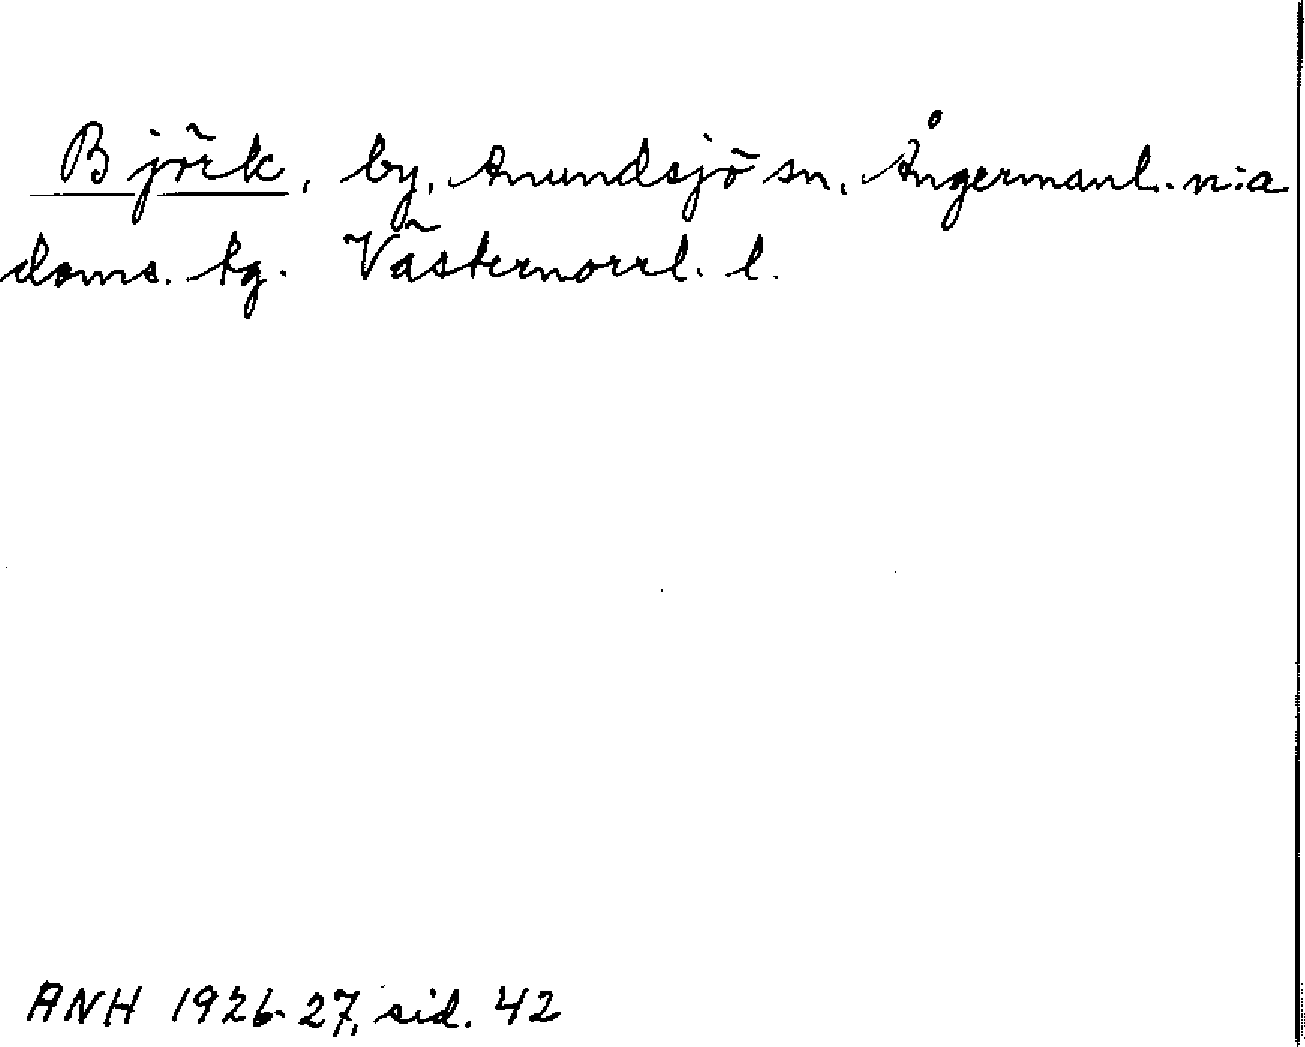 Björk, by, Anundsjö sn, Ångermanl. n:a
doms. tg. Västernorrl. l.
ANH 1926-27, sid. 42